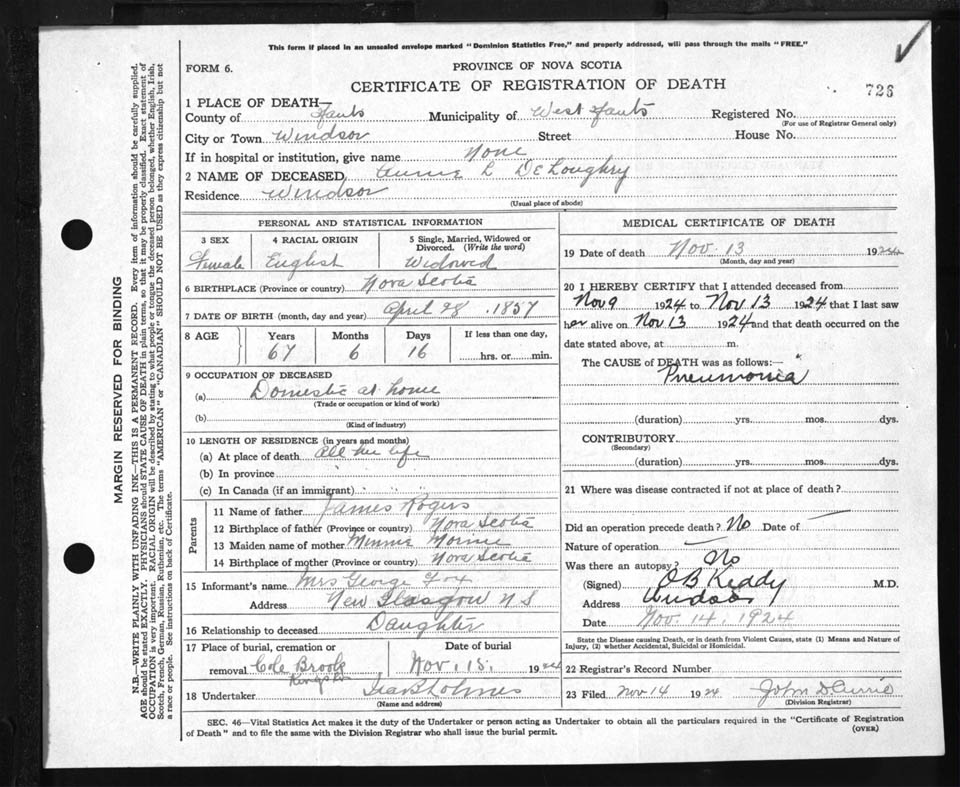 This form if placed in an unsealed envelope marked "Dominion Statistics Free," and properly addressed, will pass through the mails "FREE."
FORM 6.
PROVINCE OF NOVA SCOTIA
CERTIFICATE OF REGISTRATION OF DEATH
726
1 PLACE OF DEATH—
County of Hants Municipality of West Hants Registered No.
(For use of Registrar General only)
City or Town Windsor Street House No.
If in hospital or institution, give name None
2 NAME OF DECEASED Annie L DeLoughry
Residence Windsor
(Usual place of abode)
PERSONAL AND STATISTICAL INFORMATION
3 SEX 4 RACIAL ORIGIN 5 Single, Married, Widowed or Divorced. (Write the word)
Female English Widowed
6 BIRTHPLACE (Province or country) Nova Scotia
7 DATE OF BIRTH (month, day and year) April 28. 1857
8 AGE Years Months Days If less than one day,
67 6 16 hrs. or min.
9 OCCUPATION OF DECEASED
(a) Domestic at home
(Trade or occupation or kind of work)
(b)
(Kind of industry)
10 LENGTH OF RESIDENCE (in years and months)
(a) At place of death All her life
(b) In province " " "
(c) In Canada (if an immigrant) " " "
Parents
11 Name of father James Rogers
12 Birthplace of father (Province or country) Nova Scotia
13 Maiden name of mother Minnie
14 Birthplace of mother (Province or country) Nova Scotia
15 Informant's name Mrs George Fox
Address New Glasgow N S
16 Relationship to deceased Daughter
17 Place of burial, cremation or removal Date of burial
Cole Brook Nov. 15. 1924
Kingston
18 Undertaker
(Name and address)
MEDICAL CERTIFICATE OF DEATH
19 Date of death Nov. 13 1924
(Month, day and year)
20 I HEREBY CERTIFY that I attended deceased from
Nov 9 1924 to Nov 13 1924 that I last saw
her alive on Nov 13 1924 and that death occurred on the
date stated above, at m.
The CAUSE of DEATH was as follows:—
Pneumonia
(duration) yrs. mos. dys.
CONTRIBUTORY
(Secondary)
(duration) yrs. mos. dys.
21 Where was disease contracted if not at place of death?
Did an operation precede death? No Date of —
Nature of operation —
Was there an autopsy? No
(Signed) O B Keddy M.D.
Address Windsor
Date Nov. 14. 1924
State the Disease causing Death, or in death from Violent Causes, state (1) Means and Nature of
Injury, (2) whether Accidental, Suicidal or Homicidal.
22 Registrar's Record Number
23 Filed Nov 14 1924 John D Currie
(Division Registrar)
SEC. 46—Vital Statistics Act makes it the duty of the Undertaker or person acting as Undertaker to obtain all the particulars required in the "Certificate of Registration
of Death" and to file the same with the Division Registrar who shall issue the burial permit.
(OVER)
MARGIN RESERVED FOR BINDING
N.B.—WRITE PLAINLY WITH UNFADING INK—THIS IS A PERMANENT RECORD. Every item of information should be carefully supplied.
AGE should be stated EXACTLY. PHYSICIANS should STATE CAUSE OF DEATH in plain terms, so that it may be properly classified. Exact statement of
OCCUPATION is very important. RACIAL ORIGIN will be described by stating to what people or tongue the deceased person belonged, whether English, Irish,
Scotch, French, German, Russian, Ruthenian, etc. The terms "AMERICAN" or "CANADIAN" SHOULD NOT BE USED as they express citizenship but not
a race or people. See instructions on back of Certificate.